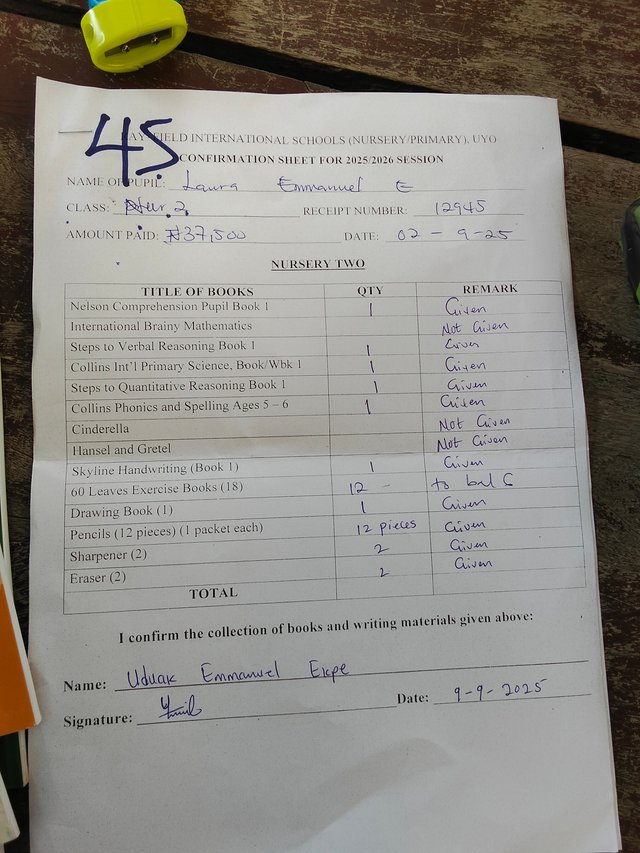 45
FIELD INTERNATIONAL SCHOOLS (NURSERY/PRIMARY), UYO
CONFIRMATION SHEET FOR 2025/2026 SESSION
NAME OF PUPIL: Laura Emmanuel E
CLASS: Nur 2 RECEIPT NUMBER: 12945
AMOUNT PAID: ₦37,500 DATE: 02 - 9-25
NURSERY TWO
TITLE OF BOOKS QTY REMARK
Nelson Comprehension Pupil Book 1 1 Given
International Brainy Mathematics Not Given
Steps to Verbal Reasoning Book 1 1 Given
Collins Int'l Primary Science, Book/Wbk 1 1 Given
Steps to Quantitative Reasoning Book 1 1 Given
Collins Phonics and Spelling Ages 5 – 6 1 Given
Cinderella Not Given
Hansel and Gretel Not Given
Skyline Handwriting (Book 1) 1 Given
60 Leaves Exercise Books (18) 12 - to bal 6
Drawing Book (1) 1 Given
Pencils (12 pieces) (1 packet each) 12 pieces Given
Sharpener (2) 2 Given
Eraser (2) 2 Given
TOTAL
I confirm the collection of books and writing materials given above:
Name: Uduak Emmanuel Ekpe
Signature: Date: 9-9-2025